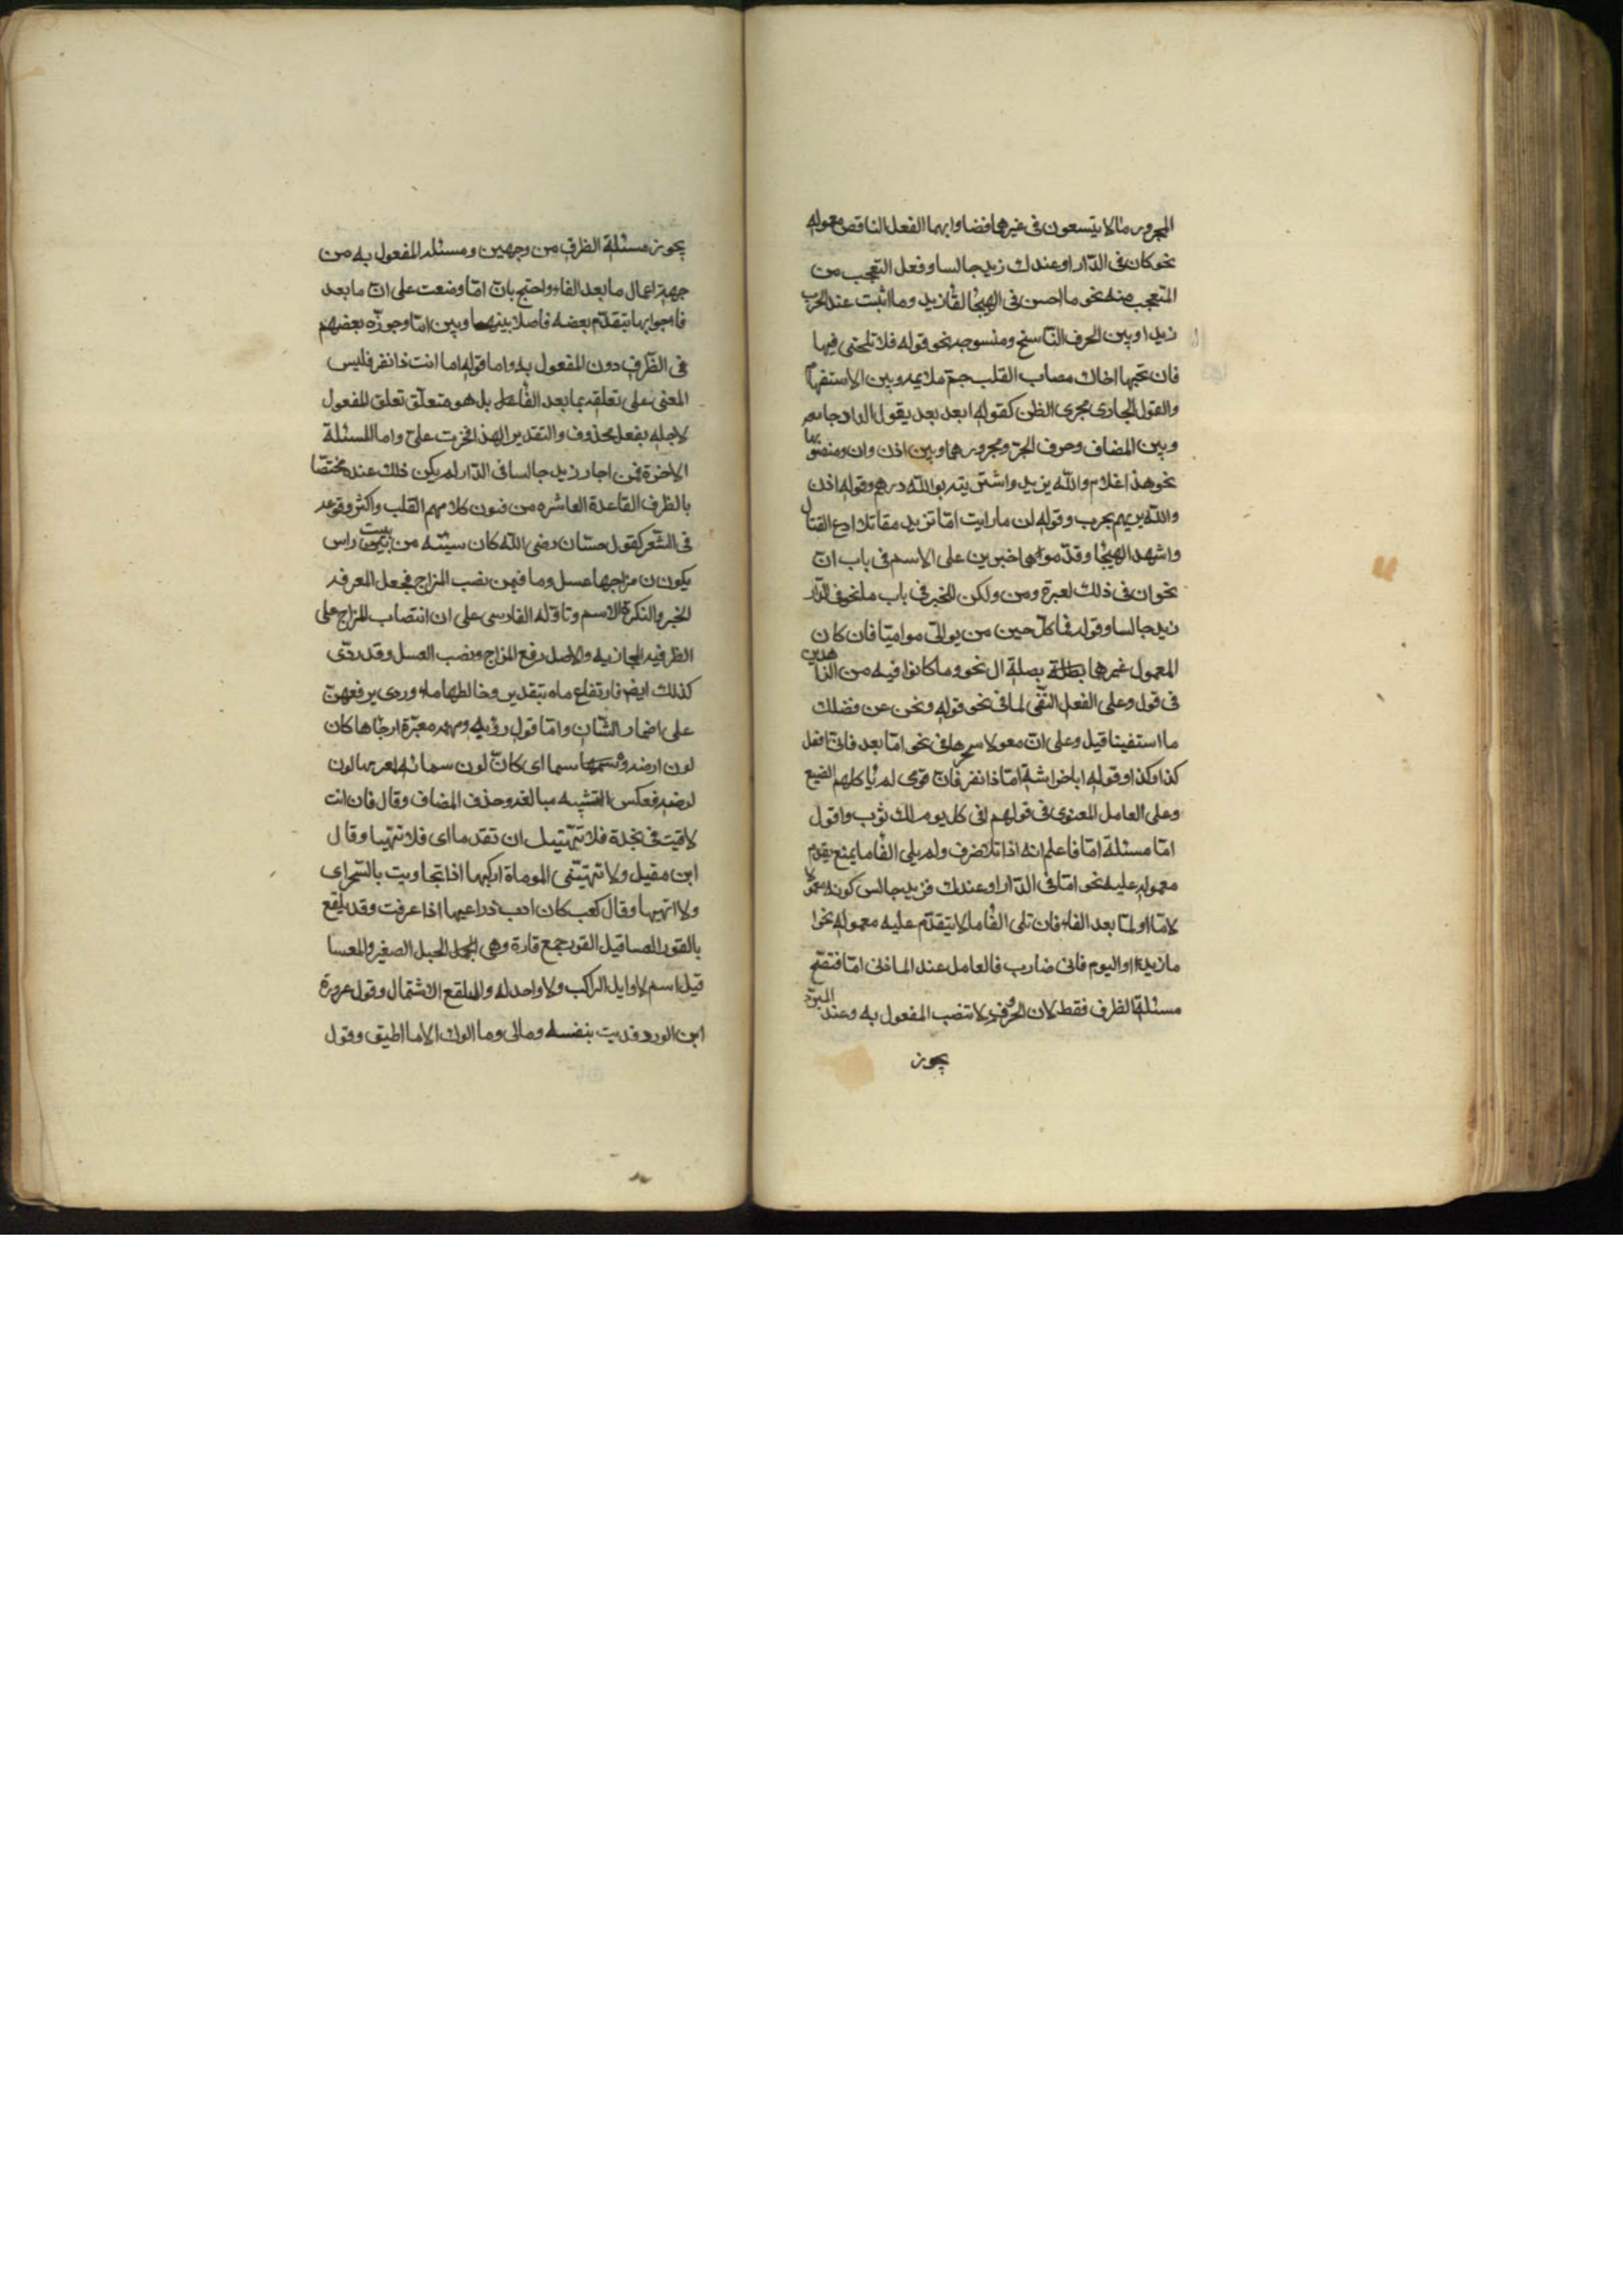 المجرور مالا يتسعون فى غيرها فضاوا بهما الفعل الناقص معموله
نحو كان فى الدار او عندك زيد جالسا وفعل التعجب من
المتعجب منه نحو ما احسن فى الهيجا لقا زيد وما اثبت عند الحرب
زيدا وبين الحرف الناسخ ومنسوخه نحو قوله فلا تلحنى فيها
فان بحبها اخاك مصاب القلب جم بلابله وبين الاستفهام
والقول الجارى مجرى الظن كقوله ابعد بعد يقول الدار جامعه
وبين المضاف وحرف الجر ومجرورهما وبين اذن وان ومنصوبهما
نحو هذا غلام والله زيد واشتريته بوالله درهم وقوله اذن
والله نرميهم بحرب وقوله لن ما رايت اما تزيد مقاتلا ادع القتال
واشهد الهيجا وقدموا هما خبرين على الاسم فى باب ان
نحو ان فى ذلك لعبرة ومن ولكن للخبر فى باب ما نحو فى الدار
زيد جالسا وقوله فما كل حين من يوالى مواميا فان كان
المعمول غيرها بطلة بصلة ال نحو وما كانوا فيه من الزاهدين
فى قول وعلى الفعل النفى لما فى نحو قوله ونحن عن فضلك
ما استغنينا قيل وعلى ان معمولا سرها فى نحو اما بعد فانى افعل
كذا وكذا وقوله ابا خراشة اما ذا نفر فان قومى لم تاكلهم الضبع
وعلى العامل المعنوى فى قولهم افى كل يوم لك ثوب واقول
اما مسئلة اما فاعلم انه اذا تلا ظرف ولم يلى الفا ما يمنع يقدم
معموله عليه نحو اما فى الدار او عندك فزيد جالس كونه معمولا
لاما او لما بعد الفاء فان تلى الفا ما لا يتقدم عليه معموله نحو ا
ما زيدا او اليوم فانى ضارب فالعامل عند المازنى اما فتصح
مسئلة الظرف فقط لان الحروف لا تنصب المفعول به وعند المبرد
يجوز
يجوز مسئلة الظرف من وجهين ومسئلة المفعول به من
جهة اعمال ما بعد الفاء واحتج بان اما وضعت على ان ما بعد
فا جوابها يتقدم بعضه فاصلا بينهما وبين اما وجوزه بعضهم
فى الظرف دون المفعول به واما قوله اما انت ذا نفر فليس
المعنى على تعلقه بما بعد الفاعل بل هو متعلق تعلق المفعول
لاجله بفعل محذوف والتقدير الهذا فخرت على واما المسئلة
الاخرة فمن اجاز زيد جالسا فى الدار لم يكن ذلك عنده مختصا
بالظرف القاعدة العاشره من فنون كلامهم القلب واكثر وقوعه
فى الشعر كقول حسان رضى الله كان سبئه من بيت راس
يكون ن مزاجها عسل وما فيمن نصب المزاج فجعل المعرفه
الخبر والنكرة الاسم وتاوله الفارسى على ان انتصاب المزاج على
الظرفيه المجازيه والاصل رفع المزاج ونصب العسل وقد روى
كذلك ايضا فارتفاع ماء بتقدير وخالطها ماء وروى يرفعهن
على اضمار الشان واما قول رؤبه ومهمه مغبرة ارجاها كان
لون ارضه سماى كان لون سمائه لغبرتها لون
ارضه فعكس التشبيه مبالغه وحذف المضاف وقال فان انت
لاقيت فى نجدة فلا تتهيبك ان تقدما اى فلا تتهيبها وقال
ابن مقبل ولا تهيبنى الموماة اركبها اذا تجاوبت بالسحر اى
ولا اتهيبها وقال كعب كان اوب ذراعيها اذا عرقت وقد تلفع
بالقور العساقيل القور جمع قارة وهى الجبل الصغير والعسا
قيل اسم لاوايل السراب ولا واحد له والتلفع الاشتمال وقول عروة
ابن الورد فديت بنفسه ومالى وما الوك الا ما اطيق وقول